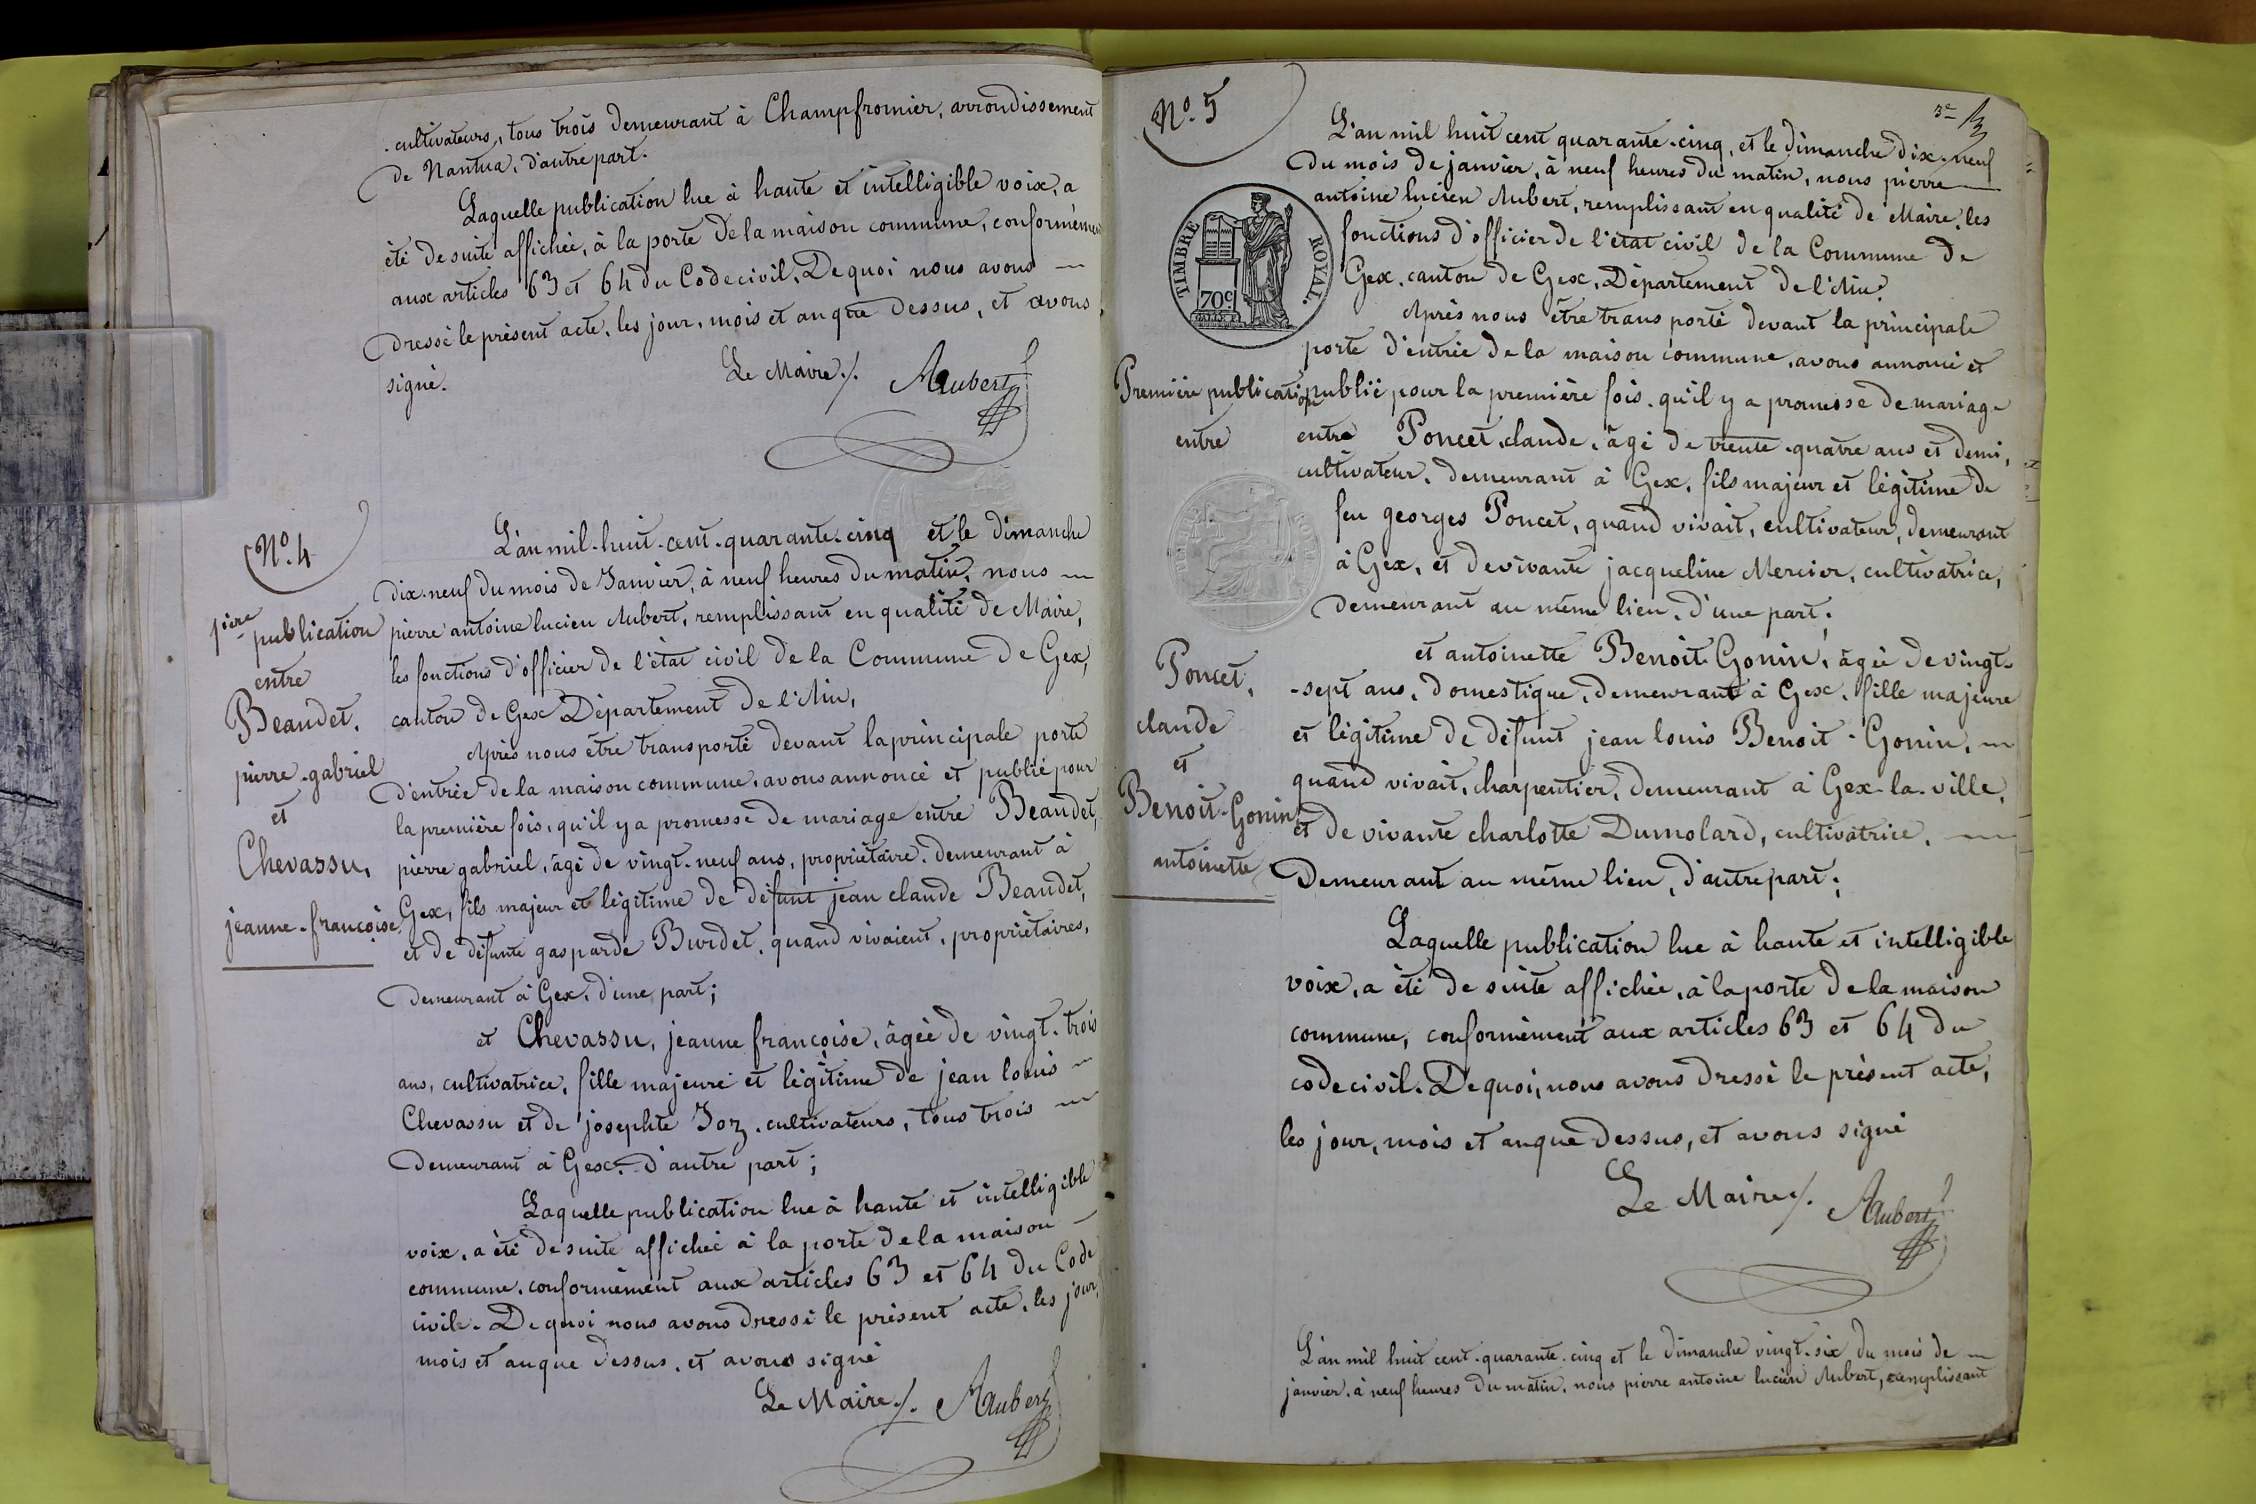 cultivateurs, tous trois demeurant à Champfromier, arrondissement
de Nantua, d'autre part.
Laquelle publication lue à haute et intelligible voix, a
été de suite affichée, à la porte de la maison commune, conformément
aux articles 63 et 64 du Code civil. De quoi nous avons
dressé le présent acte, les jour, mois et an que dessus, et avons
signé.
Le Maire ./. Aubert
N.º 4
1ière publication
entre
Beaudet,
pierre-gabriel
et
Chevassu,
jeanne-françoise
L'an mil-huit-cent-quarante-cinq et le dimanche
dix-neuf du mois de Janvier, à neuf heures du matin, nous
pierre antoine lucien Aubert, remplissant en qualité de Maire,
les fonctions d'officier de l'état civil de la Commune de Gex,
canton de Gex Département de l'Ain,
Après nous être transporté devant la principale porte
d'entrée de la maison commune, avons annoncé et publié pour
la première fois, qu'il y a promesse de mariage entre Beaudet,
pierre gabriel, âgé de vingt-neuf ans, propriétaire, demeurant à
Gex, fils majeur et légitime de défunt jean claude Beaudet,
et de défunte gasparde Burdet, quand vivaient, propriétaires,
demeurant à Gex, d'une part;
et Chevassu, jeanne françoise, âgée de vingt-trois
ans, cultivatrice, fille majeure et légitime de jean louis
Chevassu et de josephte Joz, cultivateurs, tous trois
demeurant à Gex, d'autre part;
Laquelle publication lue à haute et intelligible
voix, a été de suite affichée à la porte de la maison
commune, conformément aux articles 63 et 64 du Code
civil. De quoi nous avons dressé le présent acte, les jour,
mois et an que dessus, et avons signé
Le Maire ./. Aubert
N.º 5
3e
TIMBRE ROYAL.
70c
Première publication
entre
Poncet,
claude
et
Benoit-Gonin
antoinette
L'an mil huit cent quarante-cinq, et le dimanche dix-neuf
du mois de janvier, à neuf heures du matin, nous pierre
antoine lucien Aubert, remplissant en qualité de Maire, les
fonctions d'officier de l'état civil de la Commune de
Gex, canton de Gex, Département de l'Ain.
Après nous être transporté devant la principale
porte d'entrée de la maison commune, avons annoncé et
publié pour la première fois, qu'il y a promesse de mariage
entre Poncet, claude, âgé de trente-quatre ans et demi,
cultivateur, demeurant à Gex, fils majeur et légitime de
feu georges Poncet, quand vivait, cultivateur, demeurant
à Gex, et de vivante jacqueline Mercier, cultivatrice,
demeurant au même lieu, d'une part;
et antoinette Benoit-Gonin, âgée de vingt-
-sept ans, domestique, demeurant à Gex, fille majeure
et légitime de défunt jean louis Benoit-Gonin,
quand vivait, charpentier, demeurant à Gex-la-ville,
et de vivante charlotte Dumolard, cultivatrice,
demeurant au même lieu, d'autre part;
Laquelle publication lue à haute et intelligible
voix, a été de suite affichée, à la porte de la maison
commune, conformément aux articles 63 et 64 du
code civil. De quoi, nous avons dressé le présent acte,
les jour, mois et an que dessus, et avons signé
Le Maire ./. Aubert
L'an mil huit cent-quarante-cinq et le dimanche vingt-six du mois de
janvier, à neuf heures du matin, nous pierre antoine lucien Aubert, remplissant